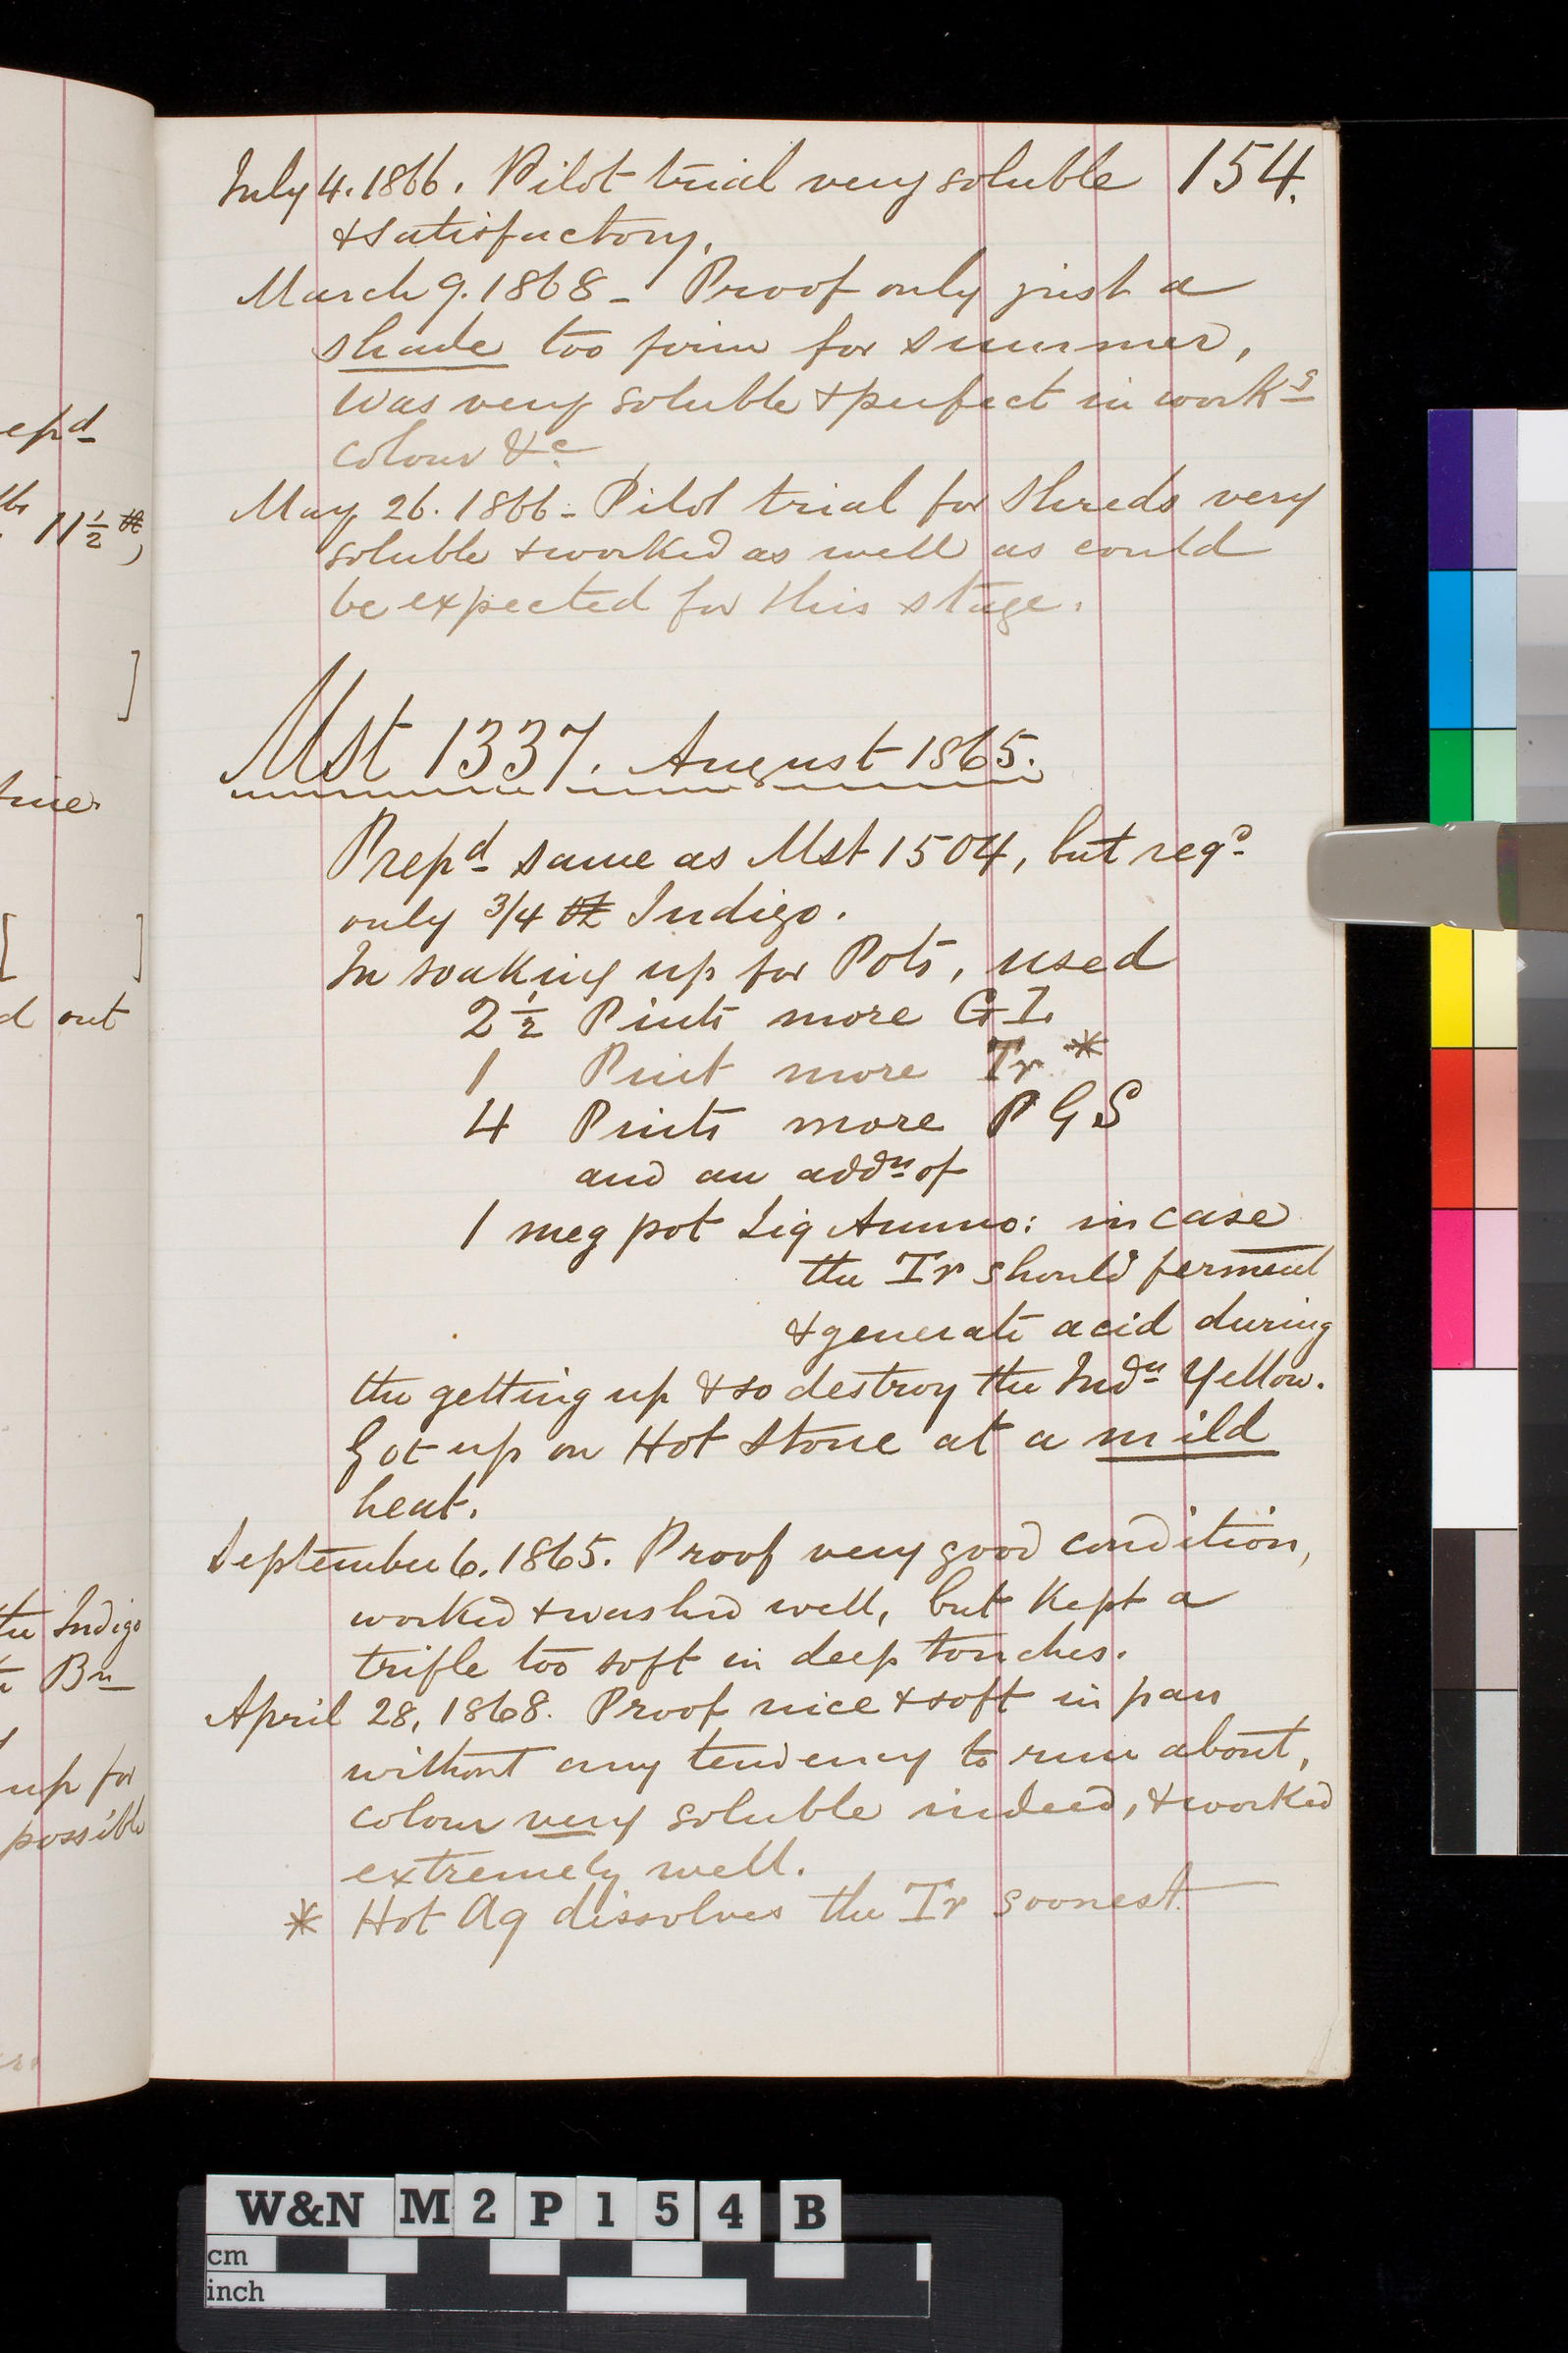 July 4. 1866. Pilot trial very soluble 154.
& satisfactory.
March 9. 1868 - Proof only just a
shade too firm for summer,
was very soluble & perfect in workg
colour &c
May 26. 1866 - Pilot trial for Shreds very
soluble & worked as well as could
be expected for this stage.
Mst 1337. August 1865.
Prepd same as Mst 1504, but reqd
only 3/4 lb Indigo.
In soaking up for Pots, used
2 1/2 Pints more GI.
1 Pint more Tr *
4 Pints more P G S
and an addn of
1 meg pot Liq Ammo: in case
the Tr should ferment
& generate acid during
the getting up & so destroy the Indn Yellow.
Got up on Hot Stone at a mild
heat.
September 6. 1865. Proof very good condition,
worked & washed well, but kept a
trifle too soft in deep touches.
April 28, 1868. Proof nice & soft in pan
without any tendency to run about,
colour very soluble indeed, & worked
extremely well.
* Hot Aq dissolves the Tr soonest.
epd
11 1/2 lb,
]
[ ]
d out
the Indigo
Bn
up for
possible
W&N M 2 P 1 5 4 B
cm
inch